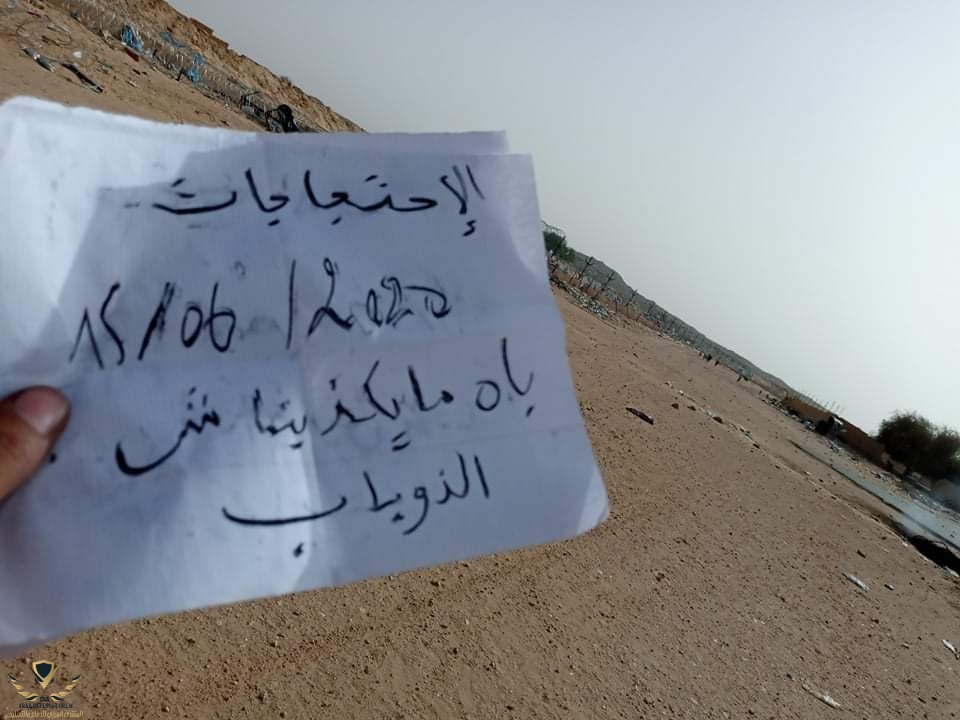 الإحتجاجات
15/06/2020
باه ما يكذبناش
الذوباب